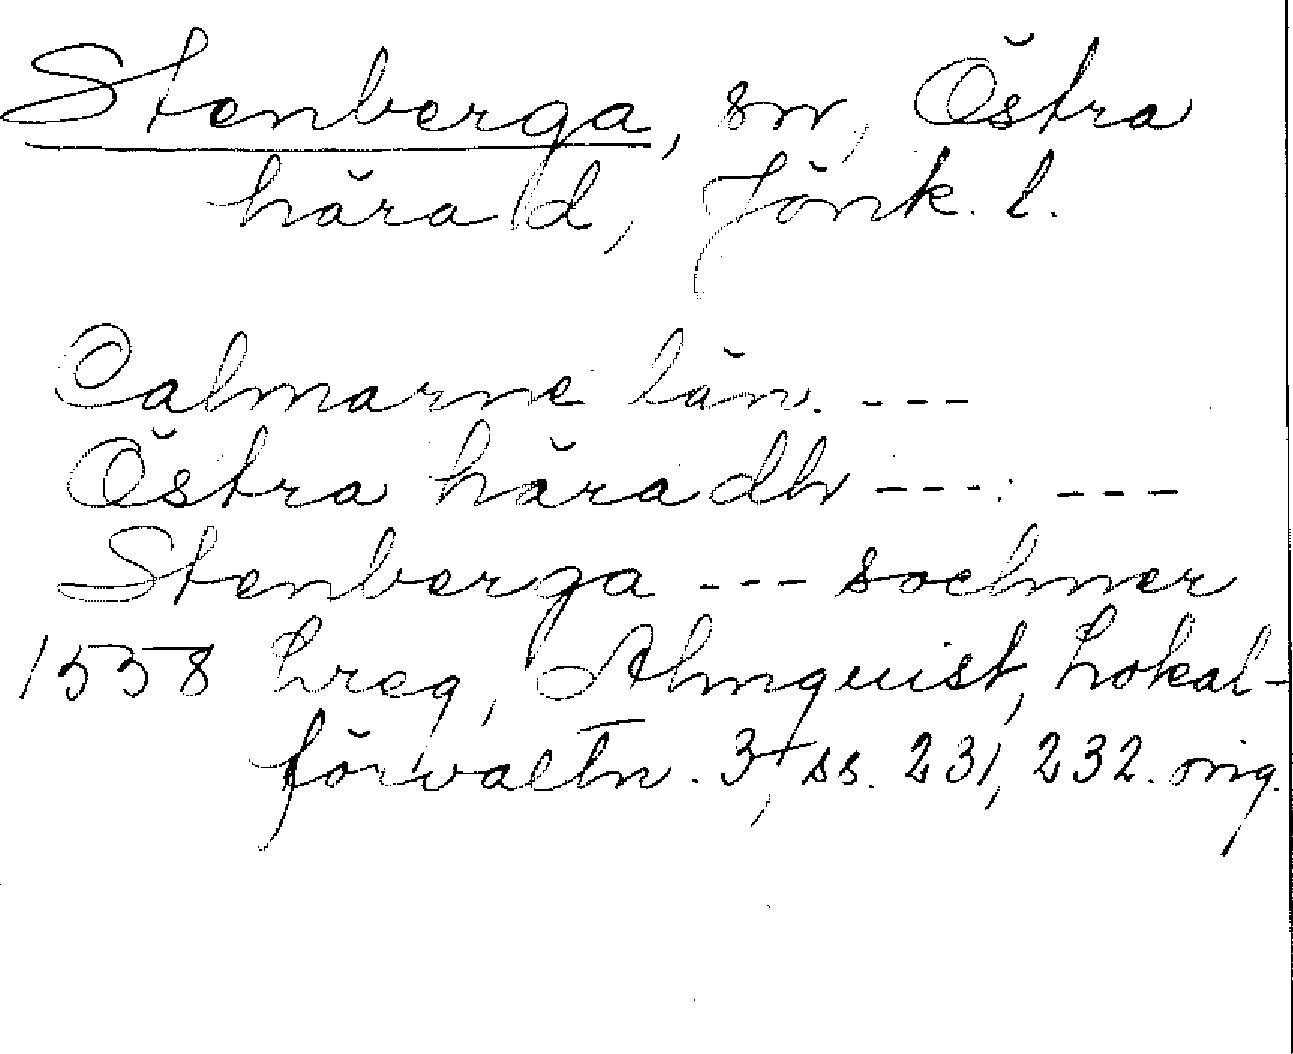 Stenberga, sn, Östra
härad, Jönk. l.
Calmarne län. ---
Östra häradh --- ---
Stenberga --- sochner
1558 Lreg, Almquist, Lokal-
förvaltn. 3, ss. 231, 232. orig.